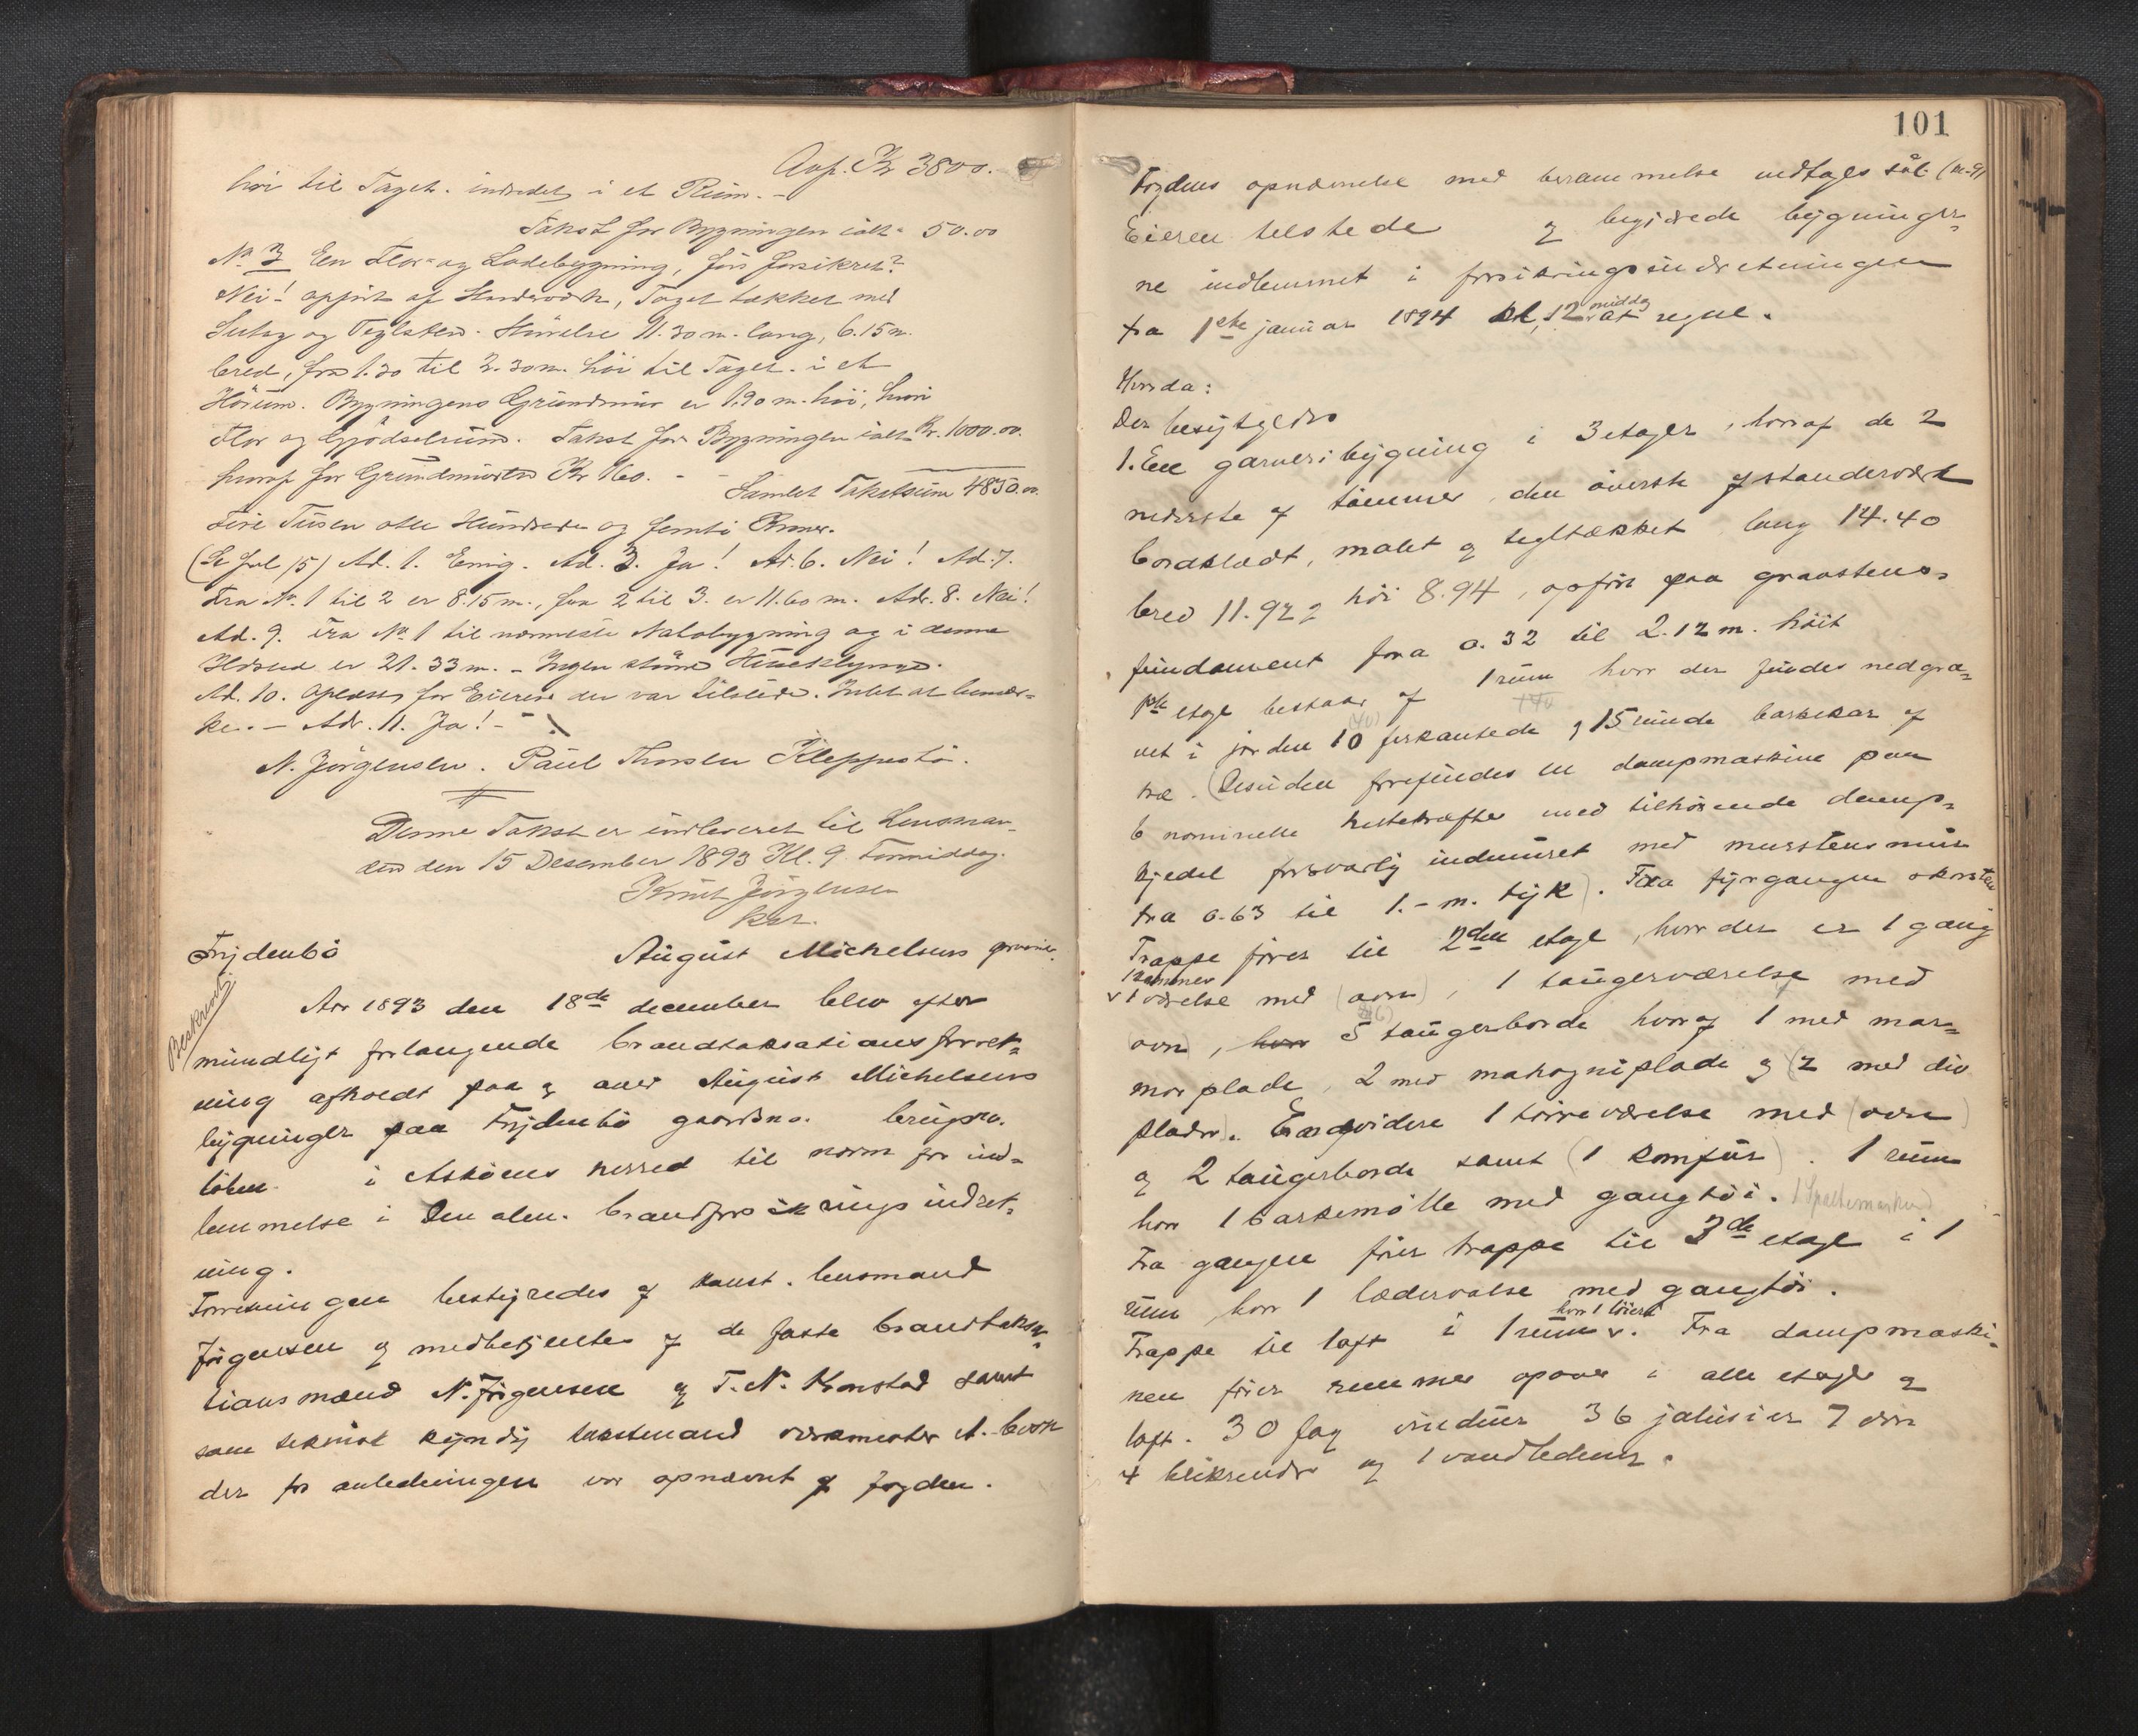 Kr 3800.
høi til Taget. indredet i et Rum. -
Takst for Bygningen ialt 50.00
No 3 En Flor- og Ladebygning, før forsikret?
Nei! opført af Taget tækket med
og Teglsten. Størrelse 11.30 m. lang, 6.15 m.
bred, fra 1.30 til 2.30 m. høi til Taget. i et
Hörum. Bygningens Grundmur er 1.90 m. høi, hvori
Flor og Gjödselrum. Takst for Bygningen ialt Kr. 1000.00.
hvoraf for Grundmuren Kr 160. - - Samlet Takstsum 4850.00.
Fire Tusen otte Hundrede og femti Kroner.
(Se fol 15) Ad. 1. Enig. Ad. 3. Ja! Ad. 6. Nei! Ad. 7.
Fra No. 1 til 2 er 8.15 m., fra 2 til 3. er 11.60 m. Ad. 8. Nei!
Ad. 9. Fra No. 1 til nærmeste Nabobygning og i denne
Ildsted er 21.33 m. - Ingen större Husklynge.
Ad. 10. Oplæst for Eieren der var tilstede. Intet at bemær-
ke. - Ad. 11. Ja! -
N. Jörgensen. Paul Thorsen Kleppestö.
Denne Takst er indleveret til Lensman-
den den 15 Desember 1893 Kl. 9 Formiddag.
Knut Jörgensen
kst.
Frydenbö August Michelsens garveri.
Beskrevet
Aar 1893 den 18de december blev efter
mundligt forlangende brandtaksationsforret-
ning afholdt paa og over August Michelsens
bygninger paa Frydenbö gaardsno. brugsno.
löbeno. i Asköens herred til norm for ind-
lemmelse i Den alm. brandforsikringsindret-
ning.
Forretningen bestyredes af konst. lensmand
Jörgensen og medbetjentes af de faste brandtaksa-
tionsmænd N. Jörgensen og T. N. Konstad samt
som teknisk kyndig takstmand verkmester A.
der for anledningen var opnævnt af fogden.
101
Fogdens opnævnelse med berammelse vedtages sål. (
Eieren tilstede og begjærede bygninger-
ne indlemmet i forsikringsindretningen
fra 1ste januar 1894 kl. 12 middag at regne.
Hvorda:
Der besigtigedes
1. En garveribygning i 3 etager, hvoraf de 2
nederste af tømmer, den øverste af standerverk
bordklædt, malet og tegltækket lang 14.40
bred 11.92 og høi 8.94, opfört paa graastens-
fundament fra 0.32 til 2.12 m. höit
1ste etage bestaar af 1 rum hvor der findes nedgra-
vet i jorden 10 firkantede og 15 runde barkekar af
træ. (Desuden forefindes en dampmaskine paa
6 nominelle hestekræfter med tilhörende damp-
kjedel forsvarlig indmuret med murstensmur
fra 0.63 til 1.- m. tyk). Fra fyrgangen
Trappe förer til 2den etage, hvor der er 1 gang
1 kammer
v 1 værelse med (ovn), 1 taugerværelse med
ovn, 5 taugerborde hvoraf 1 med mar-
morplade, 2 med mahogniplade og (2 med div
plader). Endvidere 1 törreværelse med (ovn)
og 2 taugerborde samt (1 komfur). 1 rum
hvor 1 barkemölle med gangtöi. 1 Spaltemaskin
Fra gangen förer trappe til 3de etage i 1
rum, hvor 1 lædervalse med gangtöi.
Trappe til loft i 1 rum v. Fra dampmaski-
nen förer remmer opover i alle etager og
loft. 30 fag vinduer 36 jalusier 7 dörr
4 blikrender og 1 vandledning.